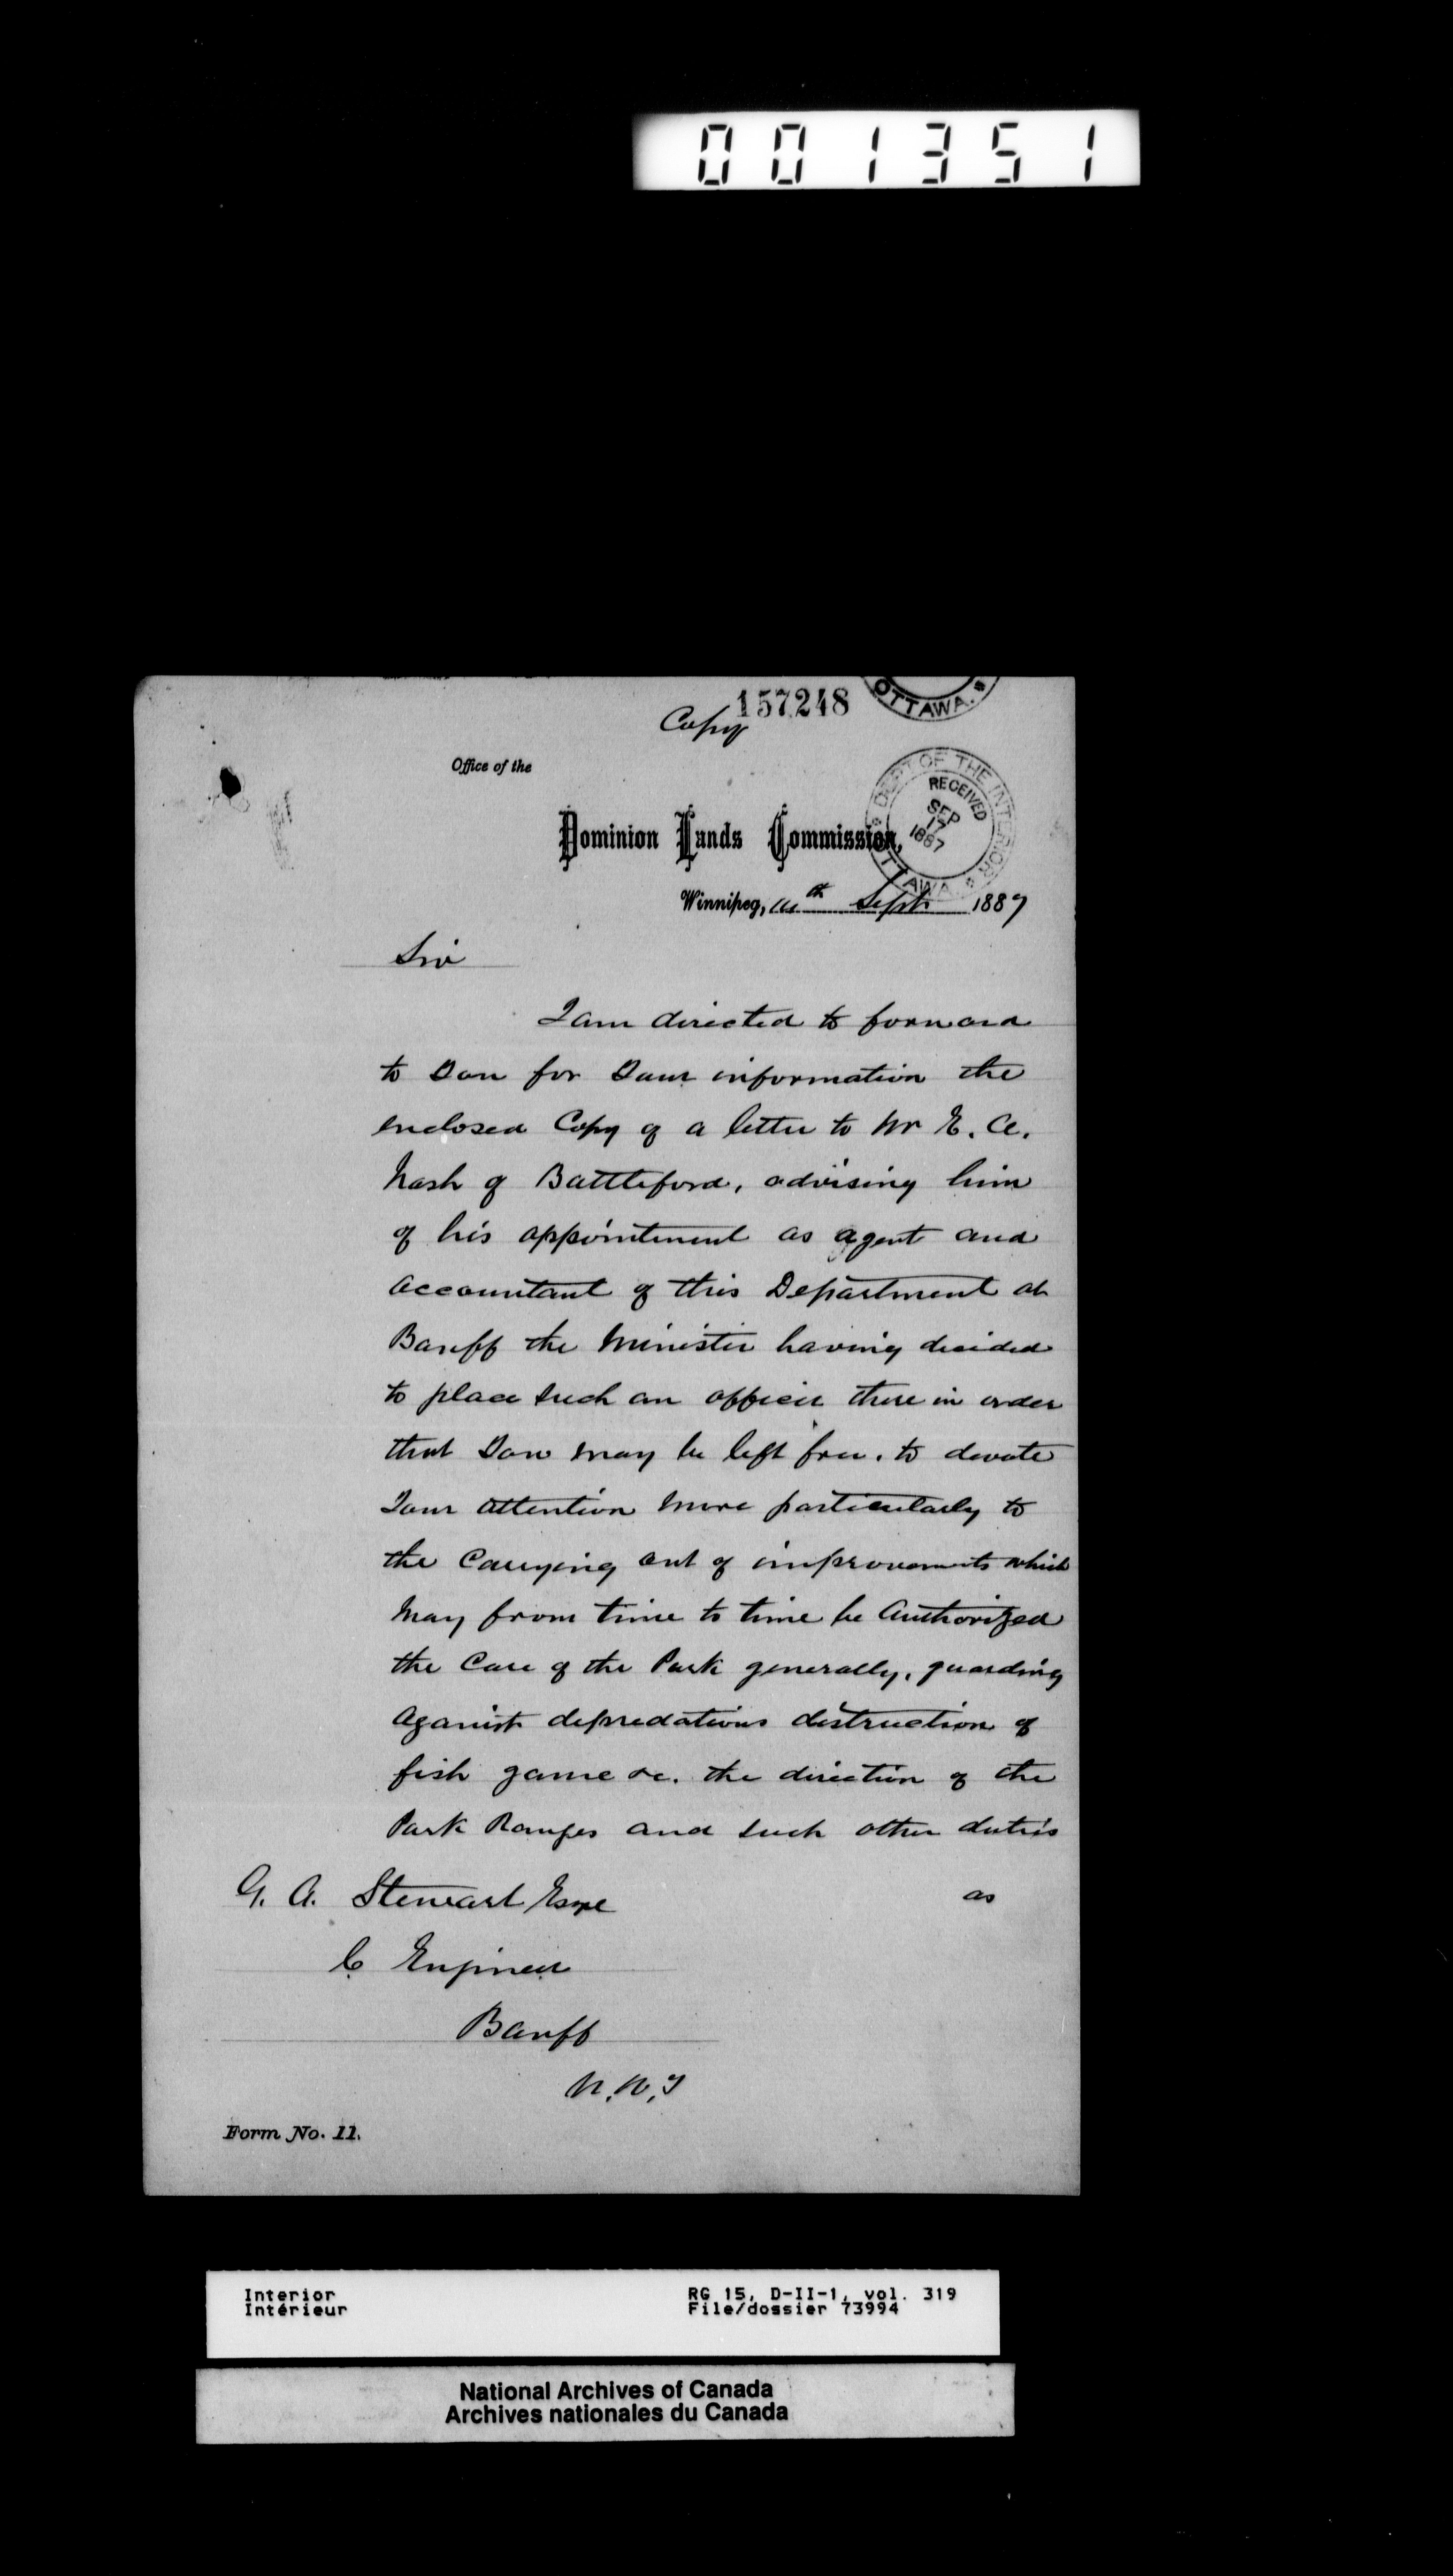 001351
157248
Copy
OTTAWA.
Office of the
DEPT OF THE INTERIOR
RECEIVED
SEP
17
1887
OTTAWA
Dominion Lands Commission,
Winnipeg, th Sept 1887
Sir
I am directed to forward
to you for your information the
enclosed Copy of a letter to Mr E. A.
Nash of Battleford, advising him
of his appointment as agent and
accountant of this Department at
Banff the Minister having decided
to place such an officer there in order
that you may be left free, to devote
your attention more particularly to
the Carrying out of improvements which
may from time to time be Authorized
the Care of the Park generally, guarding
against depredations destruction of
fish game &c. the direction of the
Park Ranges and such other duties
as
G. A. Stewart Esqre
C Engineer
Banff
N.W.T
Form No. 11.
Interior
Intérieur
RG 15, D-II-1, vol. 319
File/dossier 73994
National Archives of Canada
Archives nationales du Canada